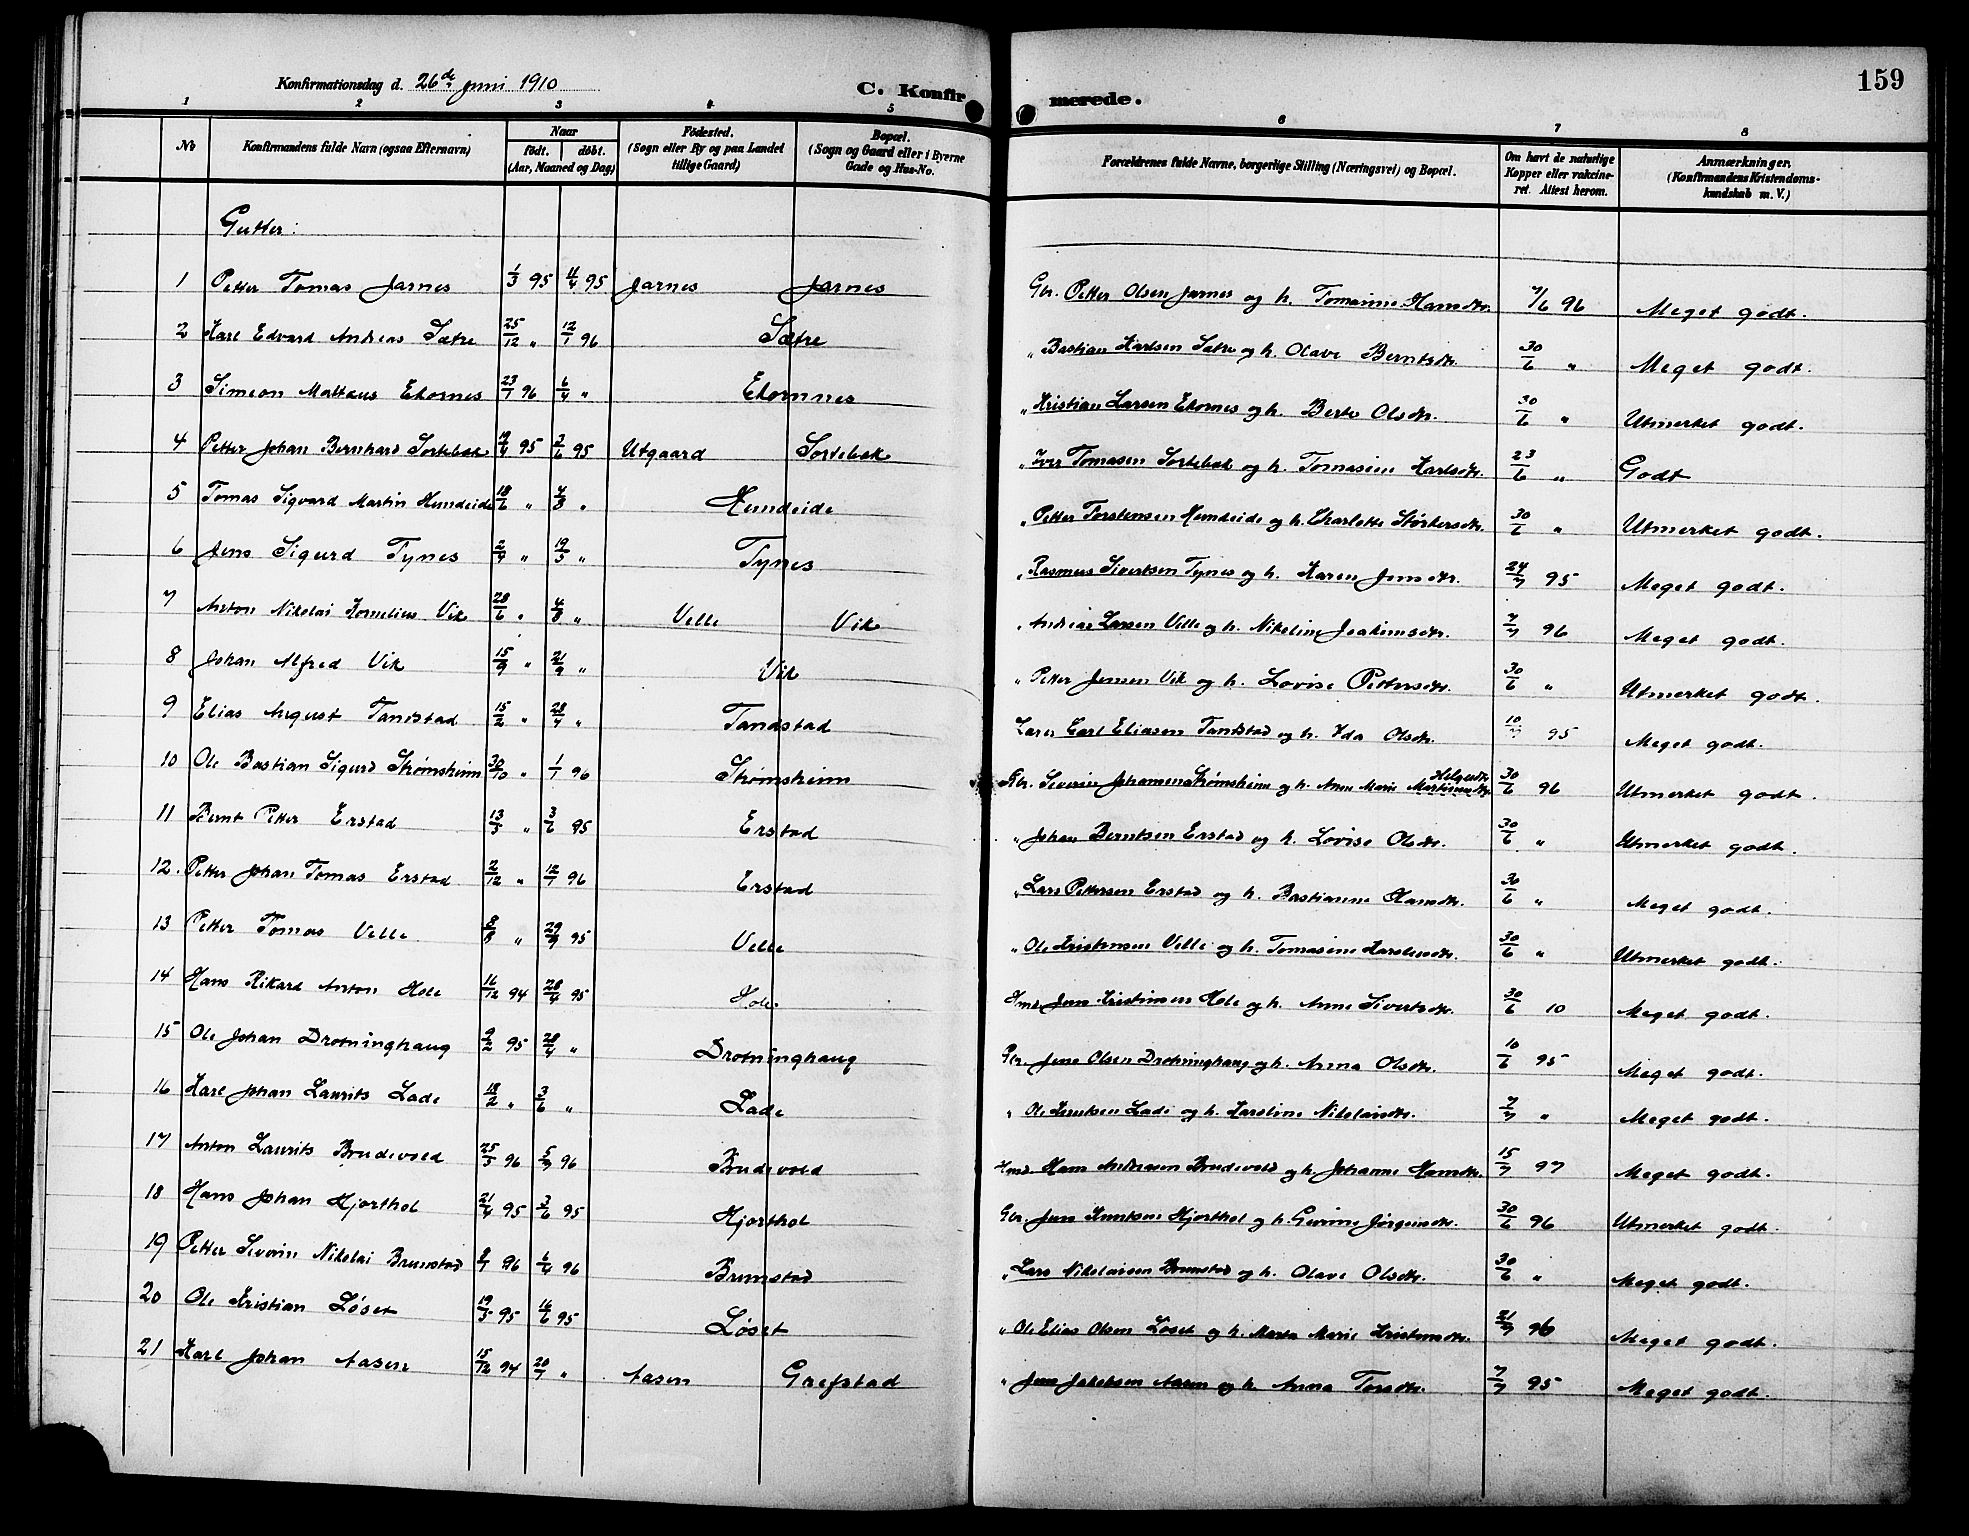 159
Konfirmationsdag d. 26de juni 1910
C. Konfirmerede.
1 2 3 4 5 6 7 8
No
Konfirmandens fulde Navn (ogsaa Efternavn)
Naar
födt. döbt.
(Aar, Maaned og Dag)
Födested.
(Sogn eller By og paa Landet tillige Gaard)
Bopæl.
(Sogn og Gaard eller i Byerne Gade og Hus-No.
Forældrenes fulde Navne, borgerlige Stilling (Næringsvei) og Bopæl.
Om havt de naturlige Kopper eller vakcineret. Attest herom.
Anmærkninger.
(Konfirmandens Kristendomskundskab m. V.)
Gutter:
1 Petter Tomas Jarnes 1/3 95 4/4 95 Jarnes Jarnes Gbr. Petter Olsen Jarnes og h. Tomasine Hansdtr. 7/6 96 Meget godt.
2 Karl Edvard Andreas Sætre 25/12 " 12/1 96 Sætre " Bastian Karlsen Sætre og h. Olave Berntsdtr. 30/6 " Meget godt.
3 Simeon Matteus Ekornes 23/1 96 6/4 " Ekornnes " Kristian Larsen Ekornes og h. Berte Olsdtr. 30/6 " Utmerket godt.
4 Petter Johan Bernhard Sortebæk 19/4 95 3/6 95 Utgaard Sortebæk " Iver Tomasen Sortebæk og h. Tomasine Karlsdtr. 23/6 " Godt
5 Tomas Sigvard Martin Hundeide 18/6 " 4/8 " Hundeide " Petter Torstensen Hundeide og h. Charlotte Størkersdtr. 30/6 " Utmerket godt.
6 Jens Sigurd Tynes 2/4 " 19/5 " Tynes " Rasmus Sivertsen Tynes og h. Karen Jensdtr. 24/7 95 Meget godt.
7 Anton Nikolai Kornelius Vik 28/6 " 4/8 " Velle Vik " Andreas Larsen Velle og h. Nikoline Joakimsdtr. 7/7 96 Meget godt.
8 Johan Alfred Vik 15/9 " 21/9 " Vik " Petter Jensen Vik og h. Lovise Pettersdtr. 30/6 " Utmerket godt.
9 Elias August Tandstad 15/2 " 28/4 " Tandstad Lærer Carl Eliasen Tandstad og h. Ida Olsdtr. 10/7 95 Meget godt.
10 Ole Bastian Sigurd Strømsheim 30/10 " 1/1 96 Strømsheim Gbr. Severin Johannesen Strømsheim og h. Anne Marie Helgesdtr. 30/6 96 Utmerket godt.
11 Bernt Petter Erstad 13/5 " 3/6 95 Erstad " Johan Berntsen Erstad og h. Lovise Olsdtr. 30/6 " Utmerket godt.
12. Petter Johan Tomas Erstad 2/12 " 12/1 96 Erstad " Lars Pettersen Erstad og h. Bastianne Hansdtr. 30/6 " Meget godt.
13 Petter Tomas Velle 8/8 " 29/9 95 Velle " Ole Kristensen Velle og h. Tomasine Karolusdtr. 30/6 " Utmerket godt.
14 Hans Rikard Anton Hole 16/12 94 28/4 95 Hole Hmd. Jens Kristensen Hole og h. Anne Sivertsdtr. 30/6 10 Meget godt.
15 Ole Johan Drotninghaug 9/2 95 28/4 " Drotninghaug Gbr. Jens Olsen Drotninghaug og h. Anna Olsdtr. 10/6 95 Meget godt.
16 Karl Johan Laurits Lade 18/2 " 3/6 " Lade " Ole Knutsen Lade og h. Karoline Nikolaisdtr. 7/7 " Meget godt.
17 Anton Laurits Brudevold 25/5 96 5/7 96 Brudevold Hmd. Hans Andreasen Brudevold og h. Johanne Hansdtr. 15/7 97 Meget godt.
18 Hans Johan Hjorthol 21/4 95 3/6 95 Hjorthol Gbr. Jens Knutsen Hjorthol og h. Gurine Jørgensdtr. 30/6 96 Utmerket godt.
19 Petter Severin Nikolai Brunstad 8/1 96 6/4 96 Brunstad " Lars Nikolaisen Brunstad og h. Olave Olsdtr. 30/6 " Meget godt.
20 Ole Kristian Løset 19/5 95 16/6 95 Løset " Ole Elias Olsen Løset og h. Marta Marie Kristensdtr. 21/7 96 Meget godt.
21 Karl Johan Aasen 15/12 94 20/7 " Aasen Grefstad " Jens Jakobsen Aasen og h. Anna Torsdtr. 7/7 95 Meget godt.